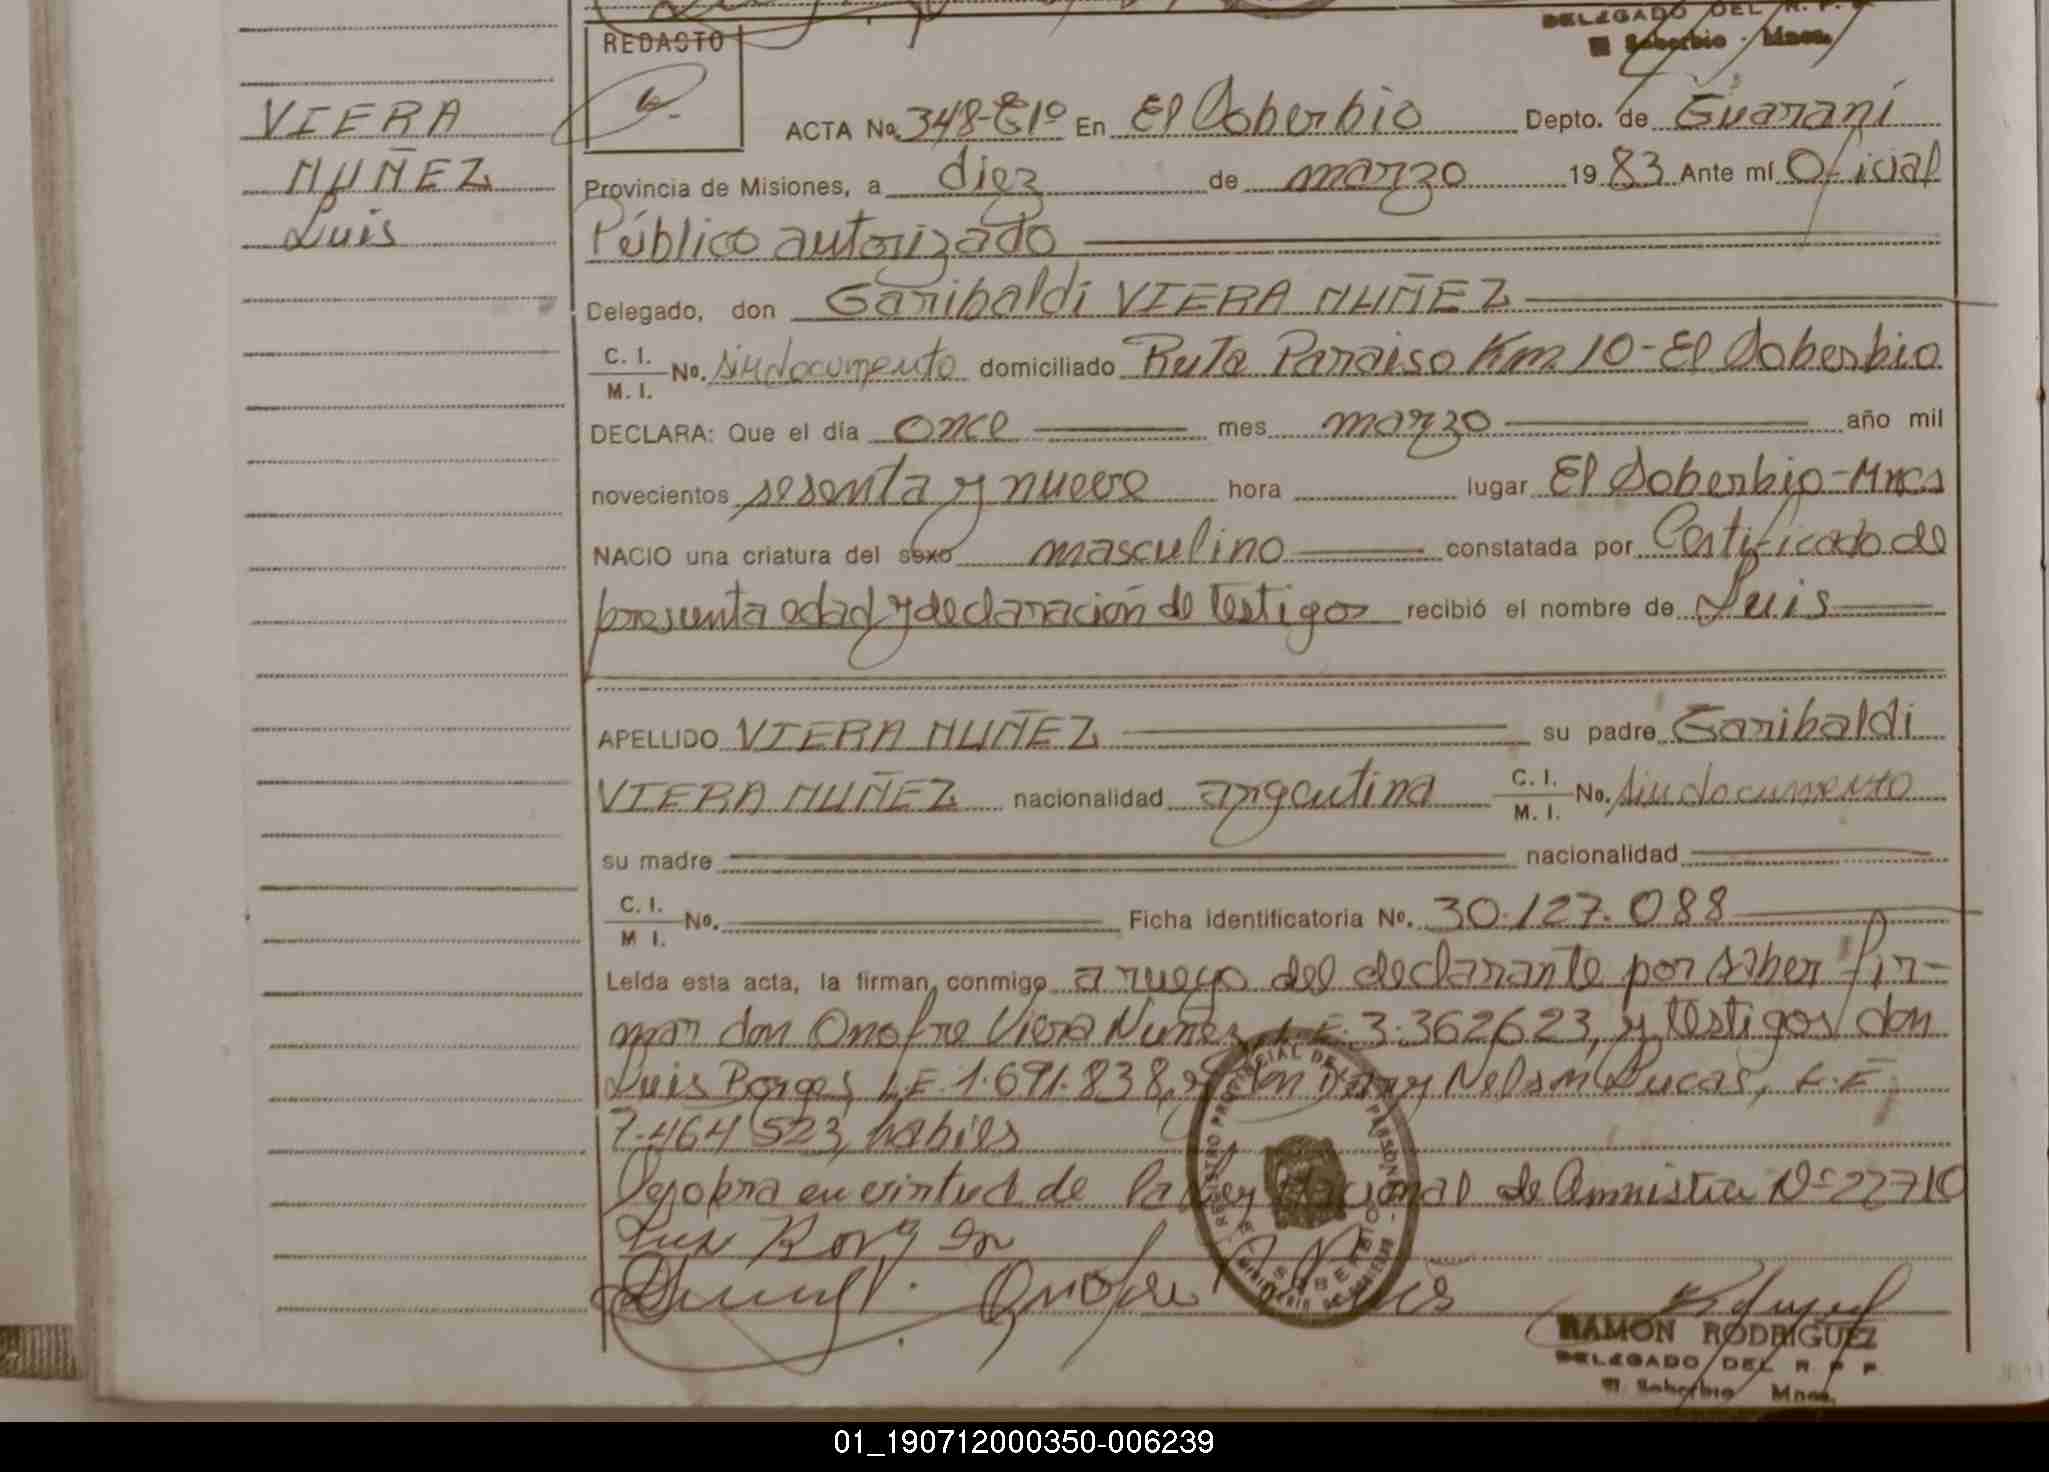 DELEGADO DEL R. P. P.
El Soberbio - Mnes.
REDACTO
VIERA
NUÑEZ
Luis
ACTA No. 348-Tº1º En El Soberbio Depto. de Guaraní
Provincia de Misiones, a diez de marzo 1983 Ante mí Oficial
Público autorizado
Delegado, don Garibaldi VIERA NUÑEZ
C. I.
M. I. No. sin documento domiciliado Ruta Paraiso Km. 10 - El Soberbio
DECLARA: Que el día once mes marzo año mil
novecientos sesenta y nueve hora lugar El Soberbio - Mnes
NACIO una criatura del sexo masculino constatada por Certificado de
presunta edad y declaración de testigos recibió el nombre de Luis
APELLIDO VIERA NUÑEZ su padre Garibaldi
VIERA NUÑEZ nacionalidad argentina C. I. M. I. No. sin documento
su madre nacionalidad
C. I.
M. I. No. Ficha identificatoria No. 30.127.088
Leída esta acta, la firman conmigo a ruego del declarante por saber fir-
mar don Onofre Viera Nuñez L.E. 3.362623, y testigos don
Luis Borges L.E. 1.691.838, y don Nelson Lucas, L.E.
7.464.523, habiles
en virtud de la Ley Nacional de Amnistia Nº 22710
REGISTRO PROVINCIAL DE LAS PERSONAS
EL SOBERBIO
MINISTERIO DE GOBIERNO
Onofre
RAMON RODRIGUEZ
DELEGADO DEL R. P. P.
El Soberbio Mnes.
01_190712000350-006239